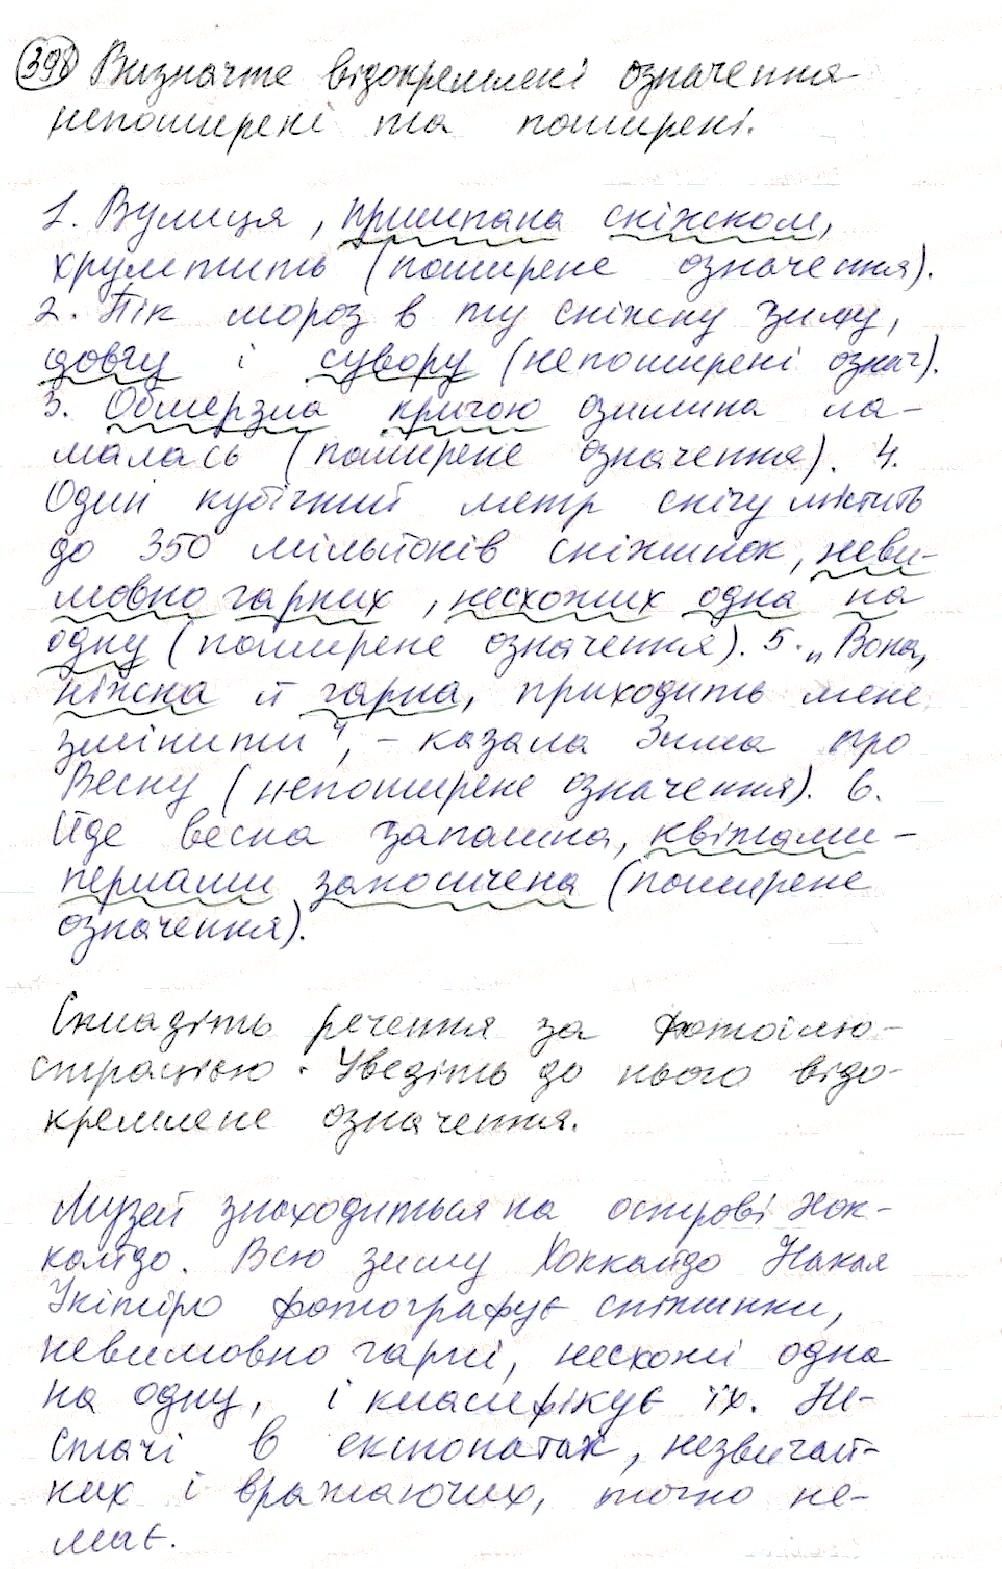 398 Визначте відокремлені означення
непоширені та поширені.
1. Вулиця, присипана сніжком,
хрумтить (поширене означення).
2. Пік мороз в ту сніжну зиму,
довгу і сувору (непоширені означ).
3. Обмерзла кригою озимина ла-
малась (поширене означення). 4.
Один кубічний метр снігу містить
до 350 мільйонів сніжинок, неви-
мовно гарних, несхожих одна на
одну (поширене означення). 5. „Вона,
ніжна й гарна, приходить мене
змінити", - казала Зима про
Весну (непоширене означення). 6.
Йде весна запашна, квітами-
перлами закосичена (поширене
означення).
Складіть речення за фотоілю-
страцією. Уведіть до нього відо-
кремлене означення.
Музей знаходиться на острові Хок-
кайдо. Всю зиму Хоккайдо Накая
Укітіро фотографує сніжинки,
невимовно гарні, несхожі одна
на одну, і класифікує їх. Не-
стачі в експонатах, незвичай-
них і вражаючих, точно не-
має.